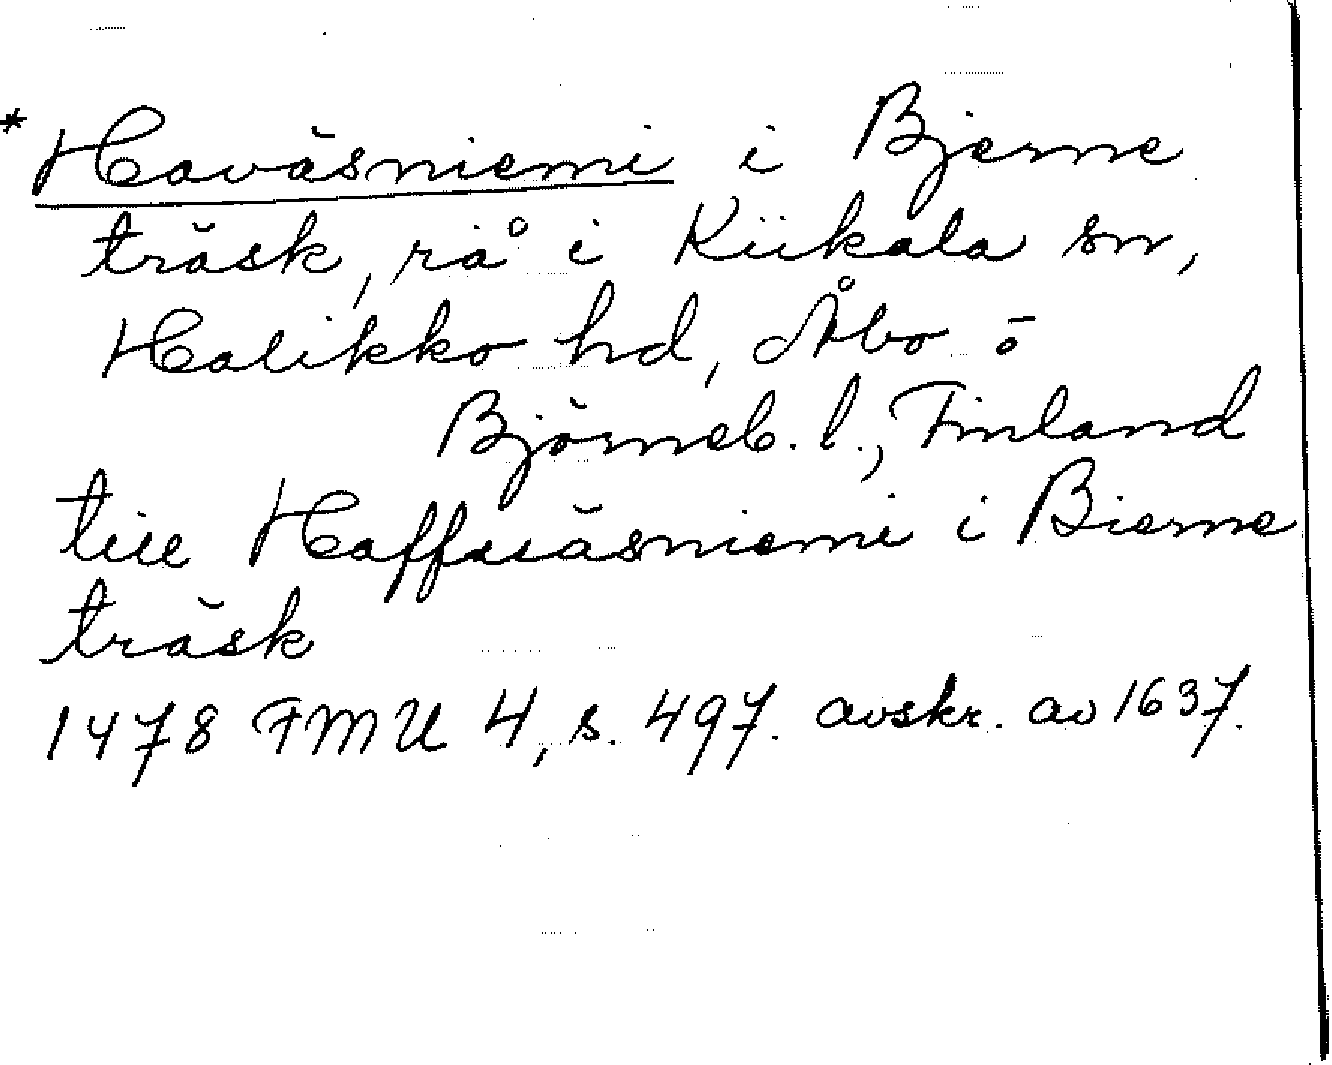 *Haväsniemi i Bjerne
träsk, rå i Kiikala sn,
Halikko hd, Åbo o
Björneb. l., Finland
till Haffuäsniemi i Bierne
träsk
1478 FMU 4, s. 497. avskr. av 1637.